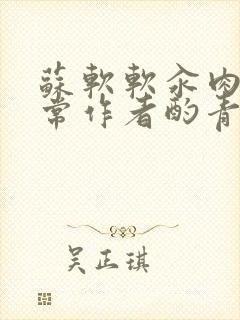 蘇軟軟汆肉
常作者酌青
吴正琪